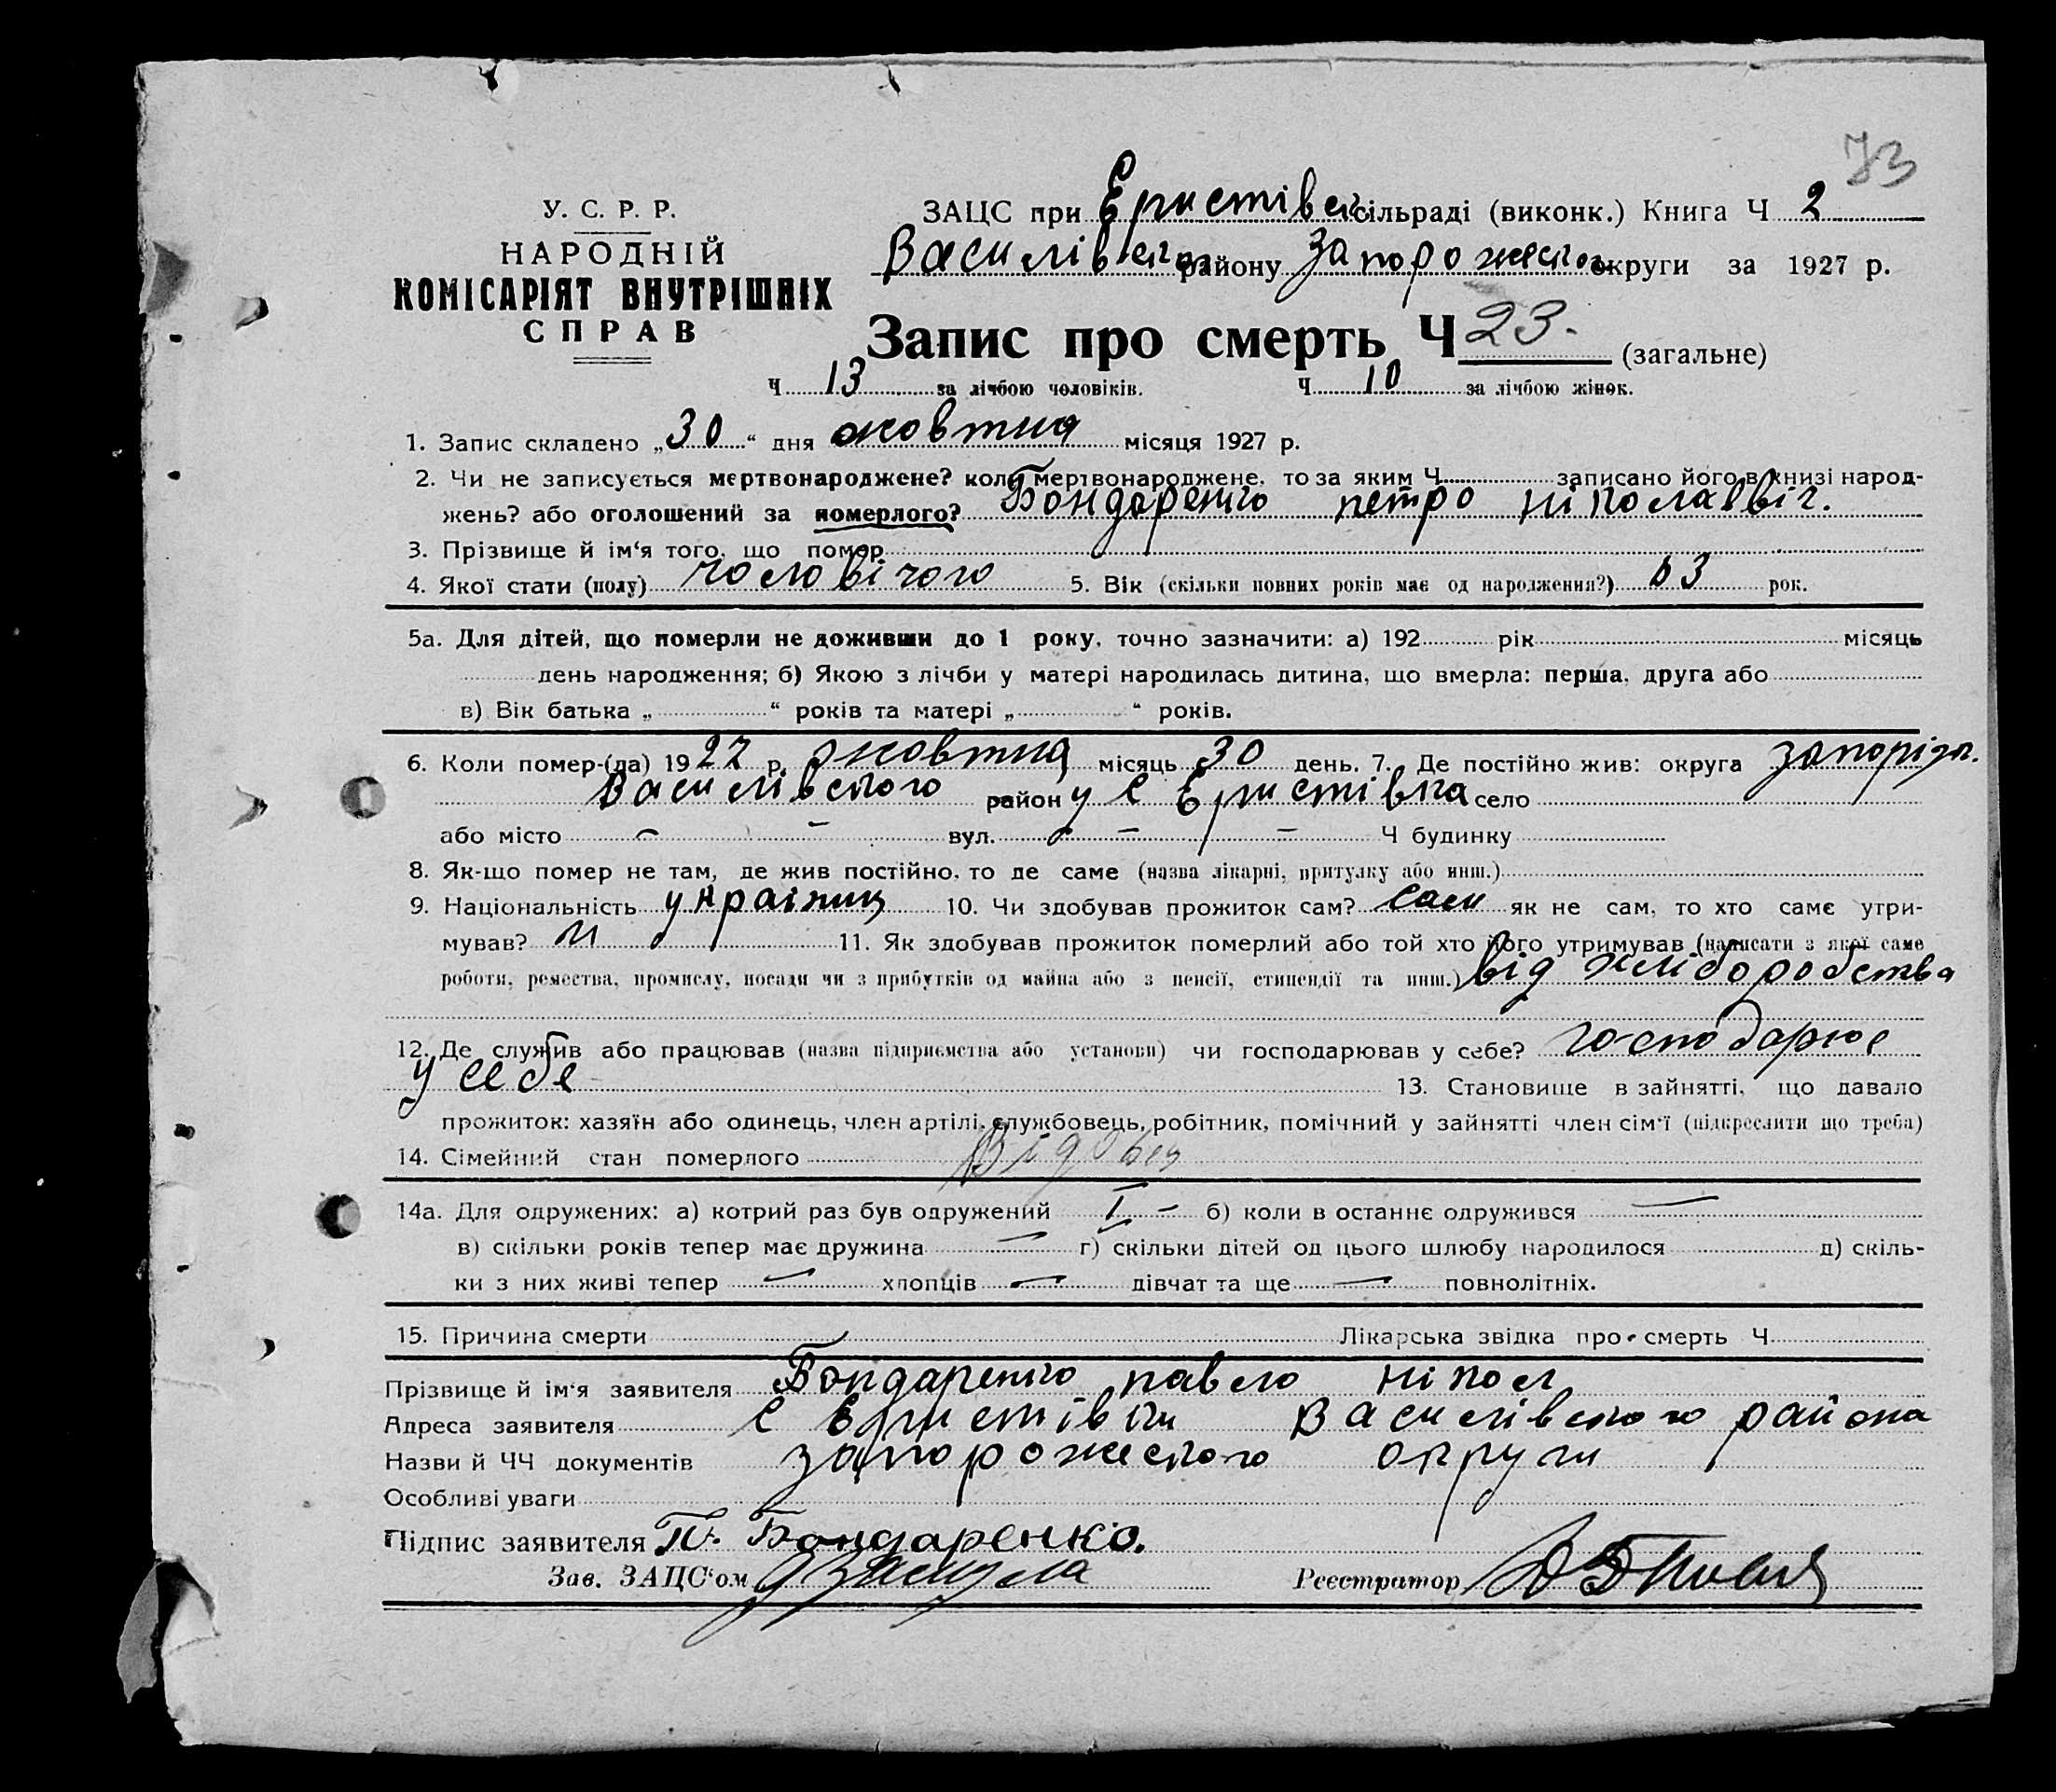 73
У. С. Р. Р.
НАРОДНІЙ
КОМІСАРІЯТ ВНУТРІШНІХ
СПРАВ
ЗАЦС при Єристівськ сільраді (виконк.) Книга Ч 2
Василівськ району Запорожськ округи за 1927 р.
Запис про смерть Ч 23. (загальне)
Ч 13 за лічбою чоловіків. Ч 10 за лічбою жінок.
1. Запис складено „30“ дня жовтня місяця 1927 р.
2. Чи не записується мертвонароджене? коли мертвонароджене, то за яким Ч записано його в книзі народ-
жень? або оголошений за померлого? Бондаренко петро
3. Прізвище й ім‘я того, що помер
4. Якої стати (полу) чоловічого 5. Вік (скільки повних років має од народження?) рок.
5а. Для дітей, що померли не доживши до 1 року, точно зазначити: а) 192 рік місяць
день народження; б) Якою з лічби у матері народилась дитина, що вмерла: перша, друга або
в) Вік батька „ “ років та матері „ “ років.
6. Коли помер-(ла) 1927 р. жовтня місяць 30 день. 7. Де постійно жив: округа запоріз.
Василівського район у с Єристівка село
або місто - - вул. - - - Ч будинку
8. Як-що помер не там, де жив постійно, то де саме (назва лікарні, притулку або инш.)
9. Національність українец 10. Чи здобував прожиток сам? сам як не сам, то хто саме утри-
мував? 11. Як здобував прожиток померлий або той хто його утримував (написати з якої саме
роботи, ремества, промислу, посади чи з прибутків од майна або з пенсії, стипендії та инш.) від хліборобства
12. Де служив або працював (назва підприємства або установи) чи господарював у себе? господарює
у себе 13. Становище в зайнятті, що давало
прожиток: хазяїн або одинець, член артілі, службовець, робітник, помічний у зайнятті член сім‘ї (підкреслити що треба)
14. Сімейний стан померлого Відовец
14а. Для одружених: а) котрий раз був одружений I - б) коли в останнє одружився —
в) скільки років тепер має дружина — г) скільки дітей од цього шлюбу народилося д) скіль-
ки з них живі тепер — хлопців — дівчат та ще — повнолітніх.
15. Причина смерти Лікарська звідка про смерть Ч
Прізвище й ім‘я заявителя Бондаренко павло нікол
Адреса заявителя с Єристівки Василівського района
Назви й ЧЧ документів запорожеського округи
Особливі уваги
Підпис заявителя П. Бондаренко.
Зав. ЗАЦС‘ом Реєстратор